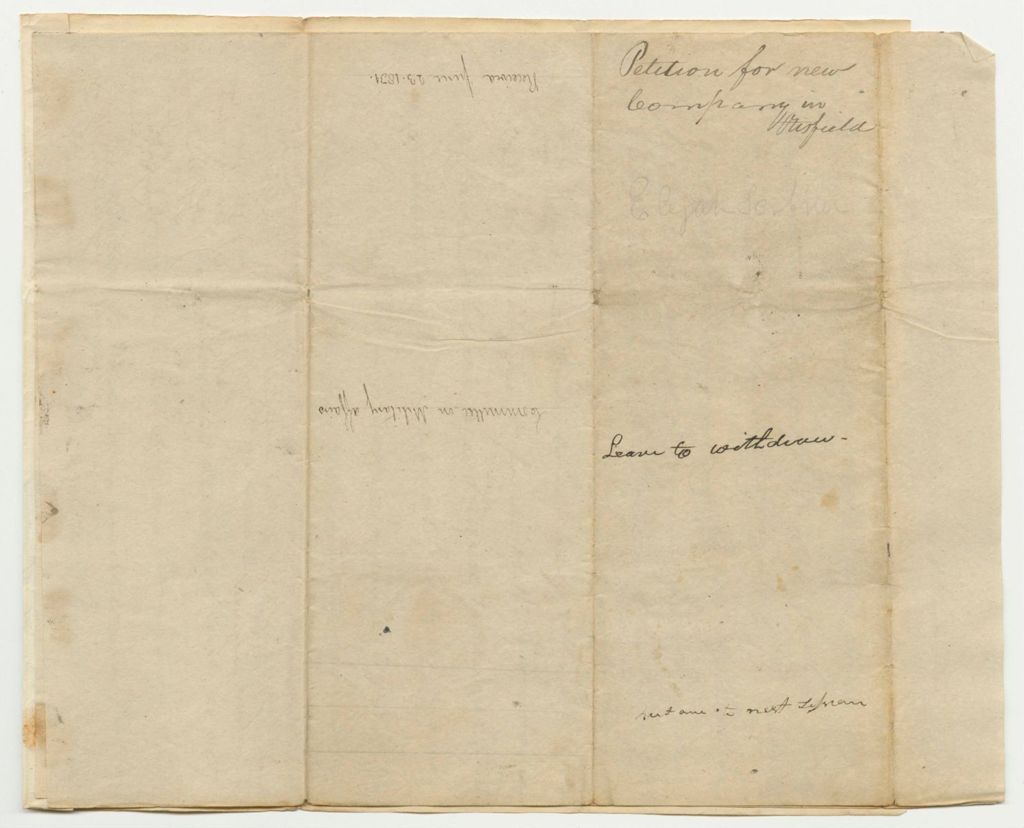 Petition for new
Company in
Westfield
Elijah
Leave to withdraw -
next session
Received June 23. 1831.
Committee on Military affairs